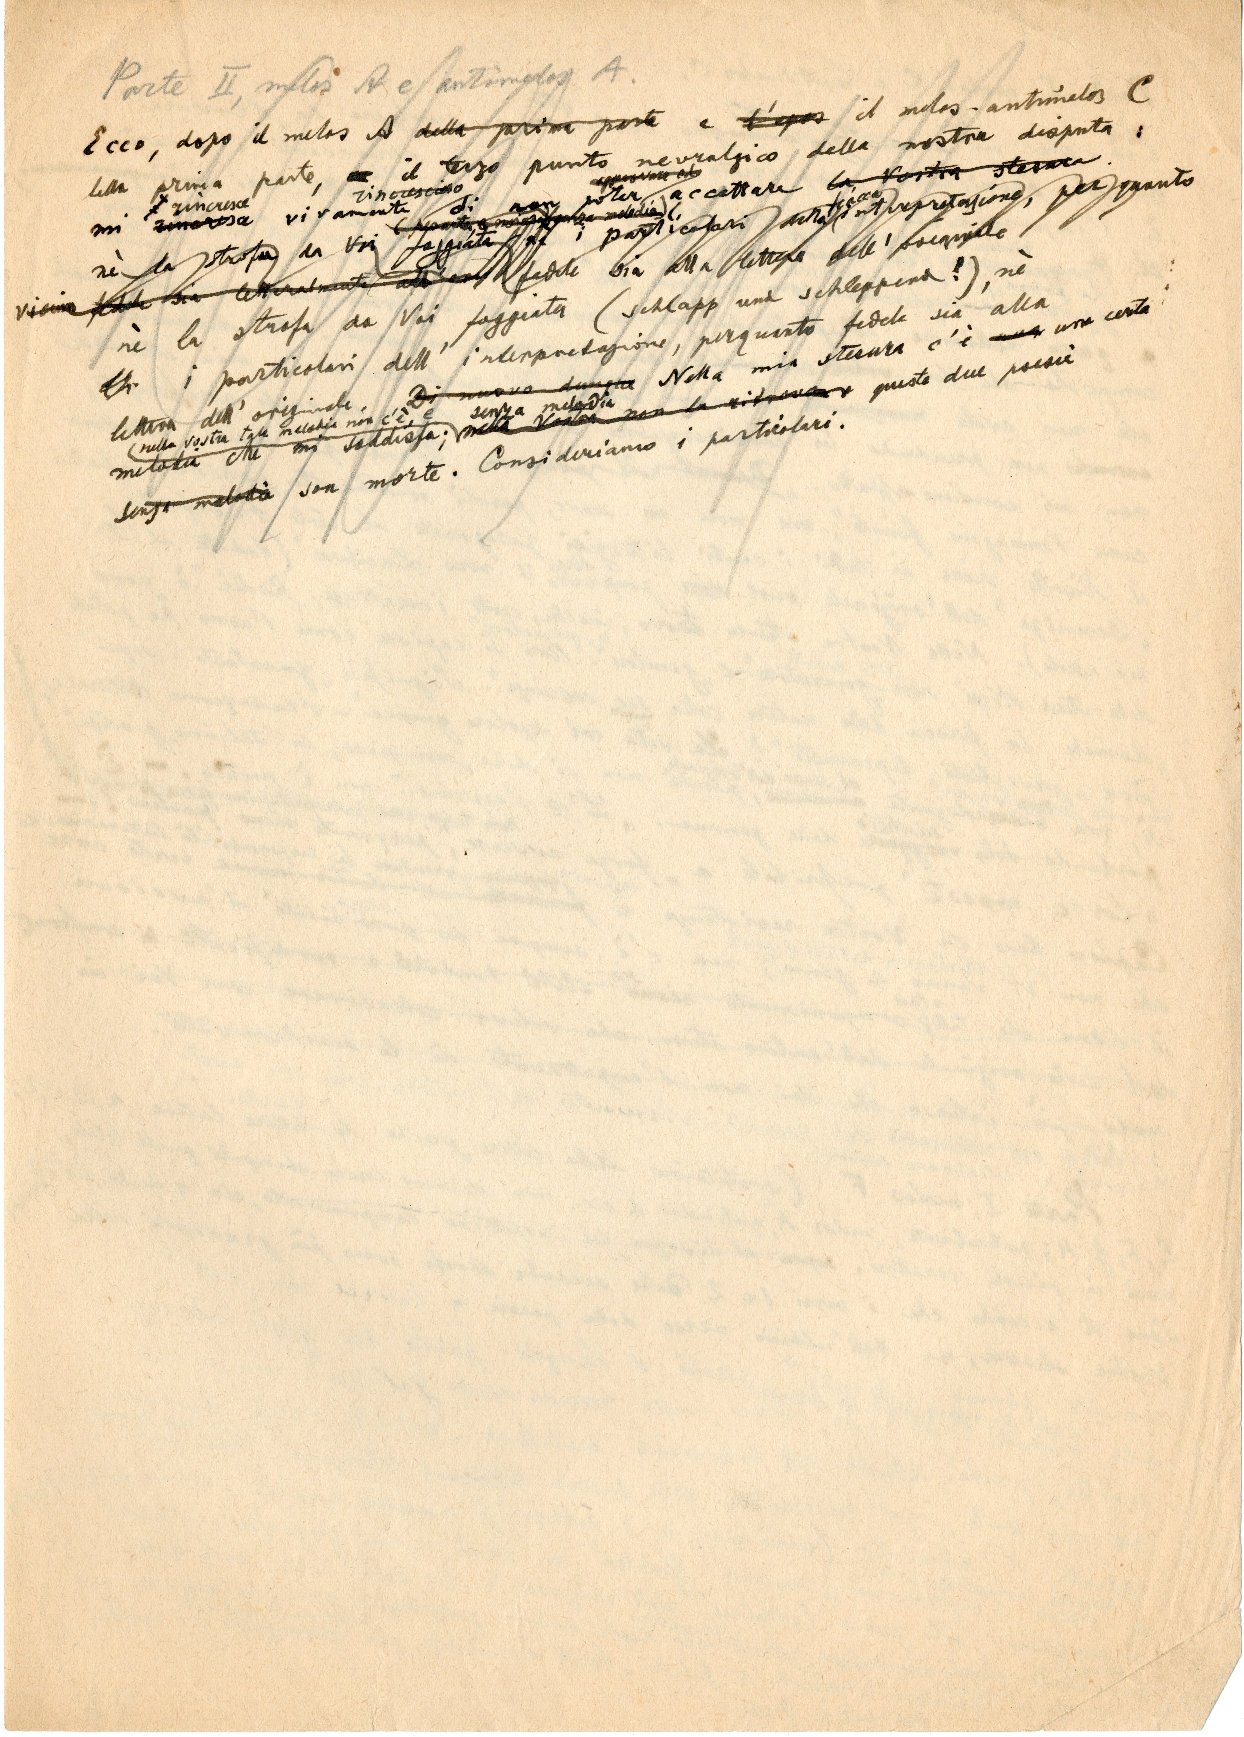 Parte II, melos A e antimelos A.
Ecco, dopo il melos A della prima parte e l'epos il melos-antimelos C
della prima parte, il terzo punto nevralgico della nostra disputa:
rincresce rincrescioso
mi rincresce vivamente di non poter accettare la Vostra stesura.
nè la strofa da Voi foggiata nè i particolari interpretazione, per quanto
vicina fedele sia letteralmente fedele sia alla lettera dell'originale
nè la strofa da Voi foggiata (schlapp und schleppend!), nè
i particolari dell'interpretazione, perquanto fedele sia alla
lettera dell'originale. Di nuovo dunque Nella mia stesura c'è una una certa
(nella vostra tale melodia non c'è, e senza melodia
melodia che mi soddisfa; nella Vostra non la ritrovo queste due poesie
senza melodia son morte. Consideriamo i particolari.